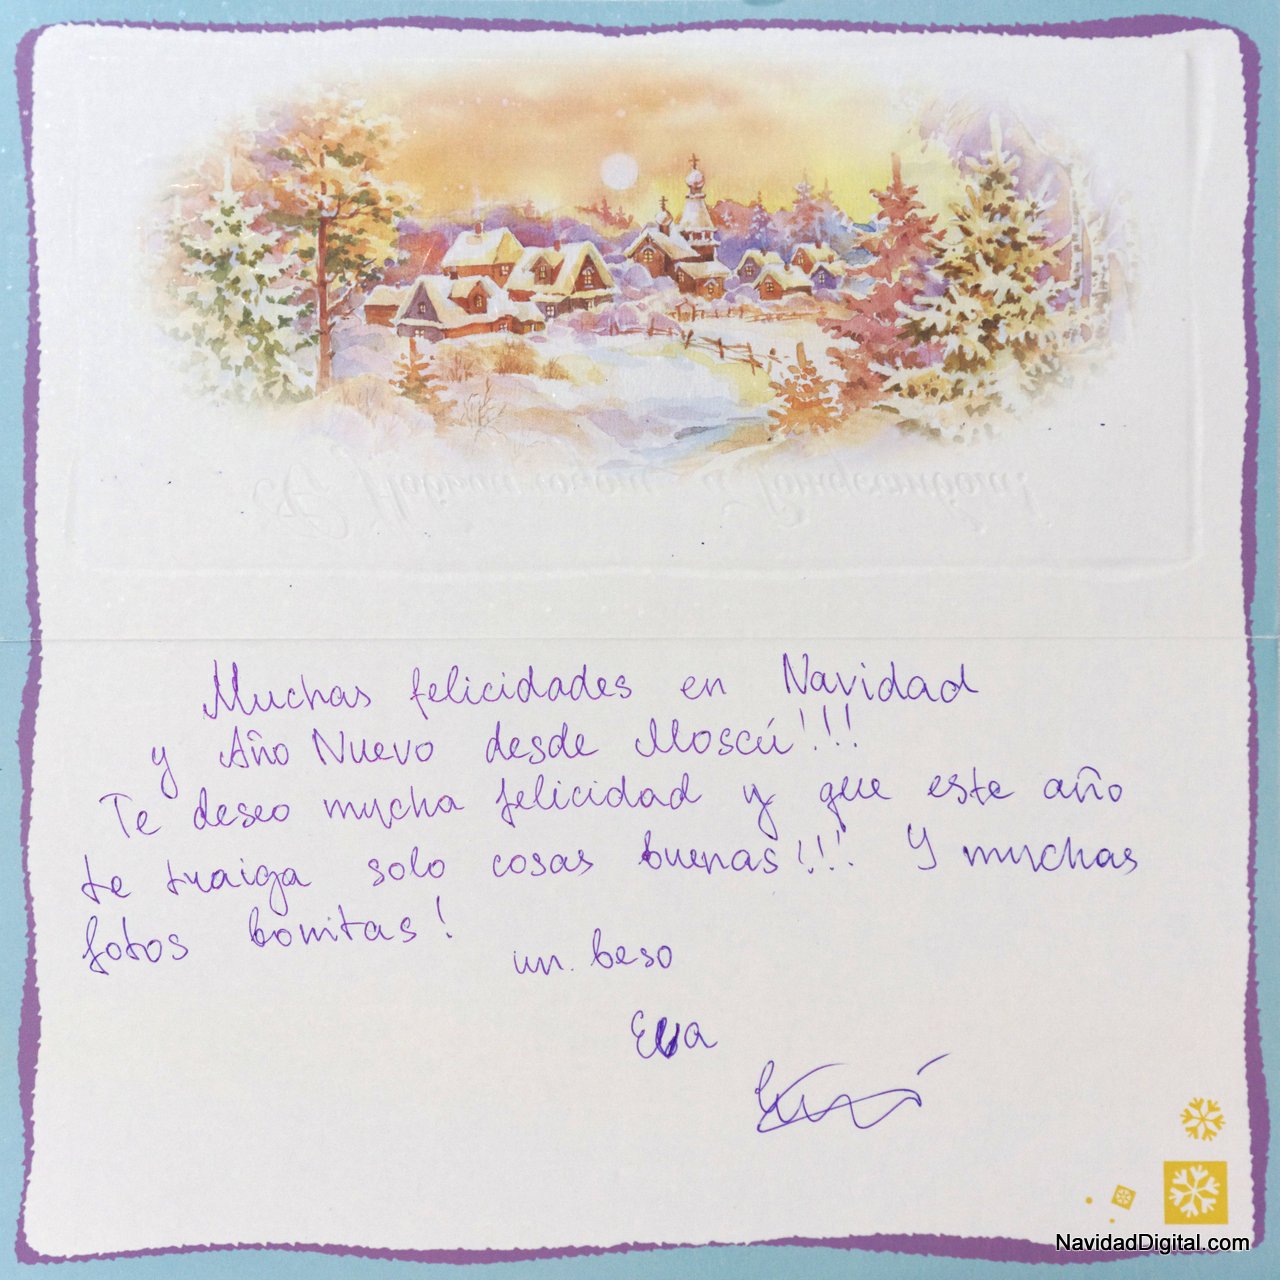 Muchas felicidades en Navidad
y Año Nuevo desde Moscú!!!
Te deseo mycha felicidad y que este año
te traiga solo cosas buenas!!! Y mychas
fotos bonitas!
un beso
Eva
NavidadDigital.com